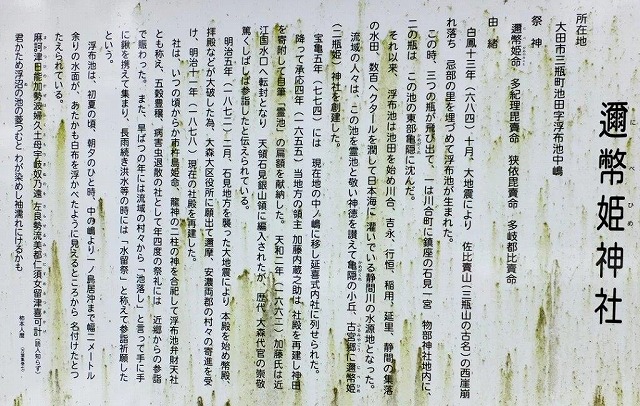 邇幣姫神社
にべひめ
所在地
大田市三瓶町池田字浮布池中嶋
祭神
邇幣姫命 多紀理毘賣命 狭依毘賣命 多岐都比賣命
由緒
白鳳十三年(六八四)十月、大地震により 佐比賣山(三瓶山の古名)の西崖崩
れ落ち 忌部の里を埋づめて浮布池が生まれた。
この時、三つの瓶が飛び出て、一は川合町に鎮座の石見一宮 物部神社地内に、
二の瓶は この池の東部亀隠に沈んだ。
それ以来、浮布池は池田を始め川合、吉永、行恒、稲用、延里、静間の集落
の水田、数百ヘクタールを潤して日本海に灌いでいる静間川の水源地となった。
流域の人々は、この池を霊池と敬い神徳を讃えて亀隠の小丘、古宮郷に邇幣姫
(二瓶姫)神社を創建した。
宝亀五年(七七四)には 現在地の中ノ嶋に移し延喜式内社に列せられた。
降って承応四年(一六五五)当地方の領主 加藤内蔵之助は、社殿を再建し神田
を寄附して自筆「霊池」の扁額を献納した。天和二年(一六八二)加藤氏は近
江国水口へ転封となり 天領石見銀山領に編入されたが、歴代 大森代官の崇敬
篤くしばしば参詣したと伝えられている。
明治五年(一八七二)二月、石見地方を襲った大地震により本殿を始め幣殿、
拝殿などが大破した為、大森大区役所に願出て邇摩、安濃両郡の村々の寄進を受
け、明治十一年(一八七八)現在の社殿を再建した。
社は いつの頃からか市杵島姫命、龍神の二柱の神を合祀して浮布池弁財天社
とも称え、五穀豊穣、病害虫退散の社として年四度の祭礼には 近郷からの参詣
で賑わった。また、旱ばつの年には流域の村々から「池落し」と言って手に手
に鍬を携えて集まり、長雨続き洪水等の時には「水留祭」と称えて参詣祈願した
という。
浮布池は、初夏の頃、朝夕のひと時、中の嶋より一ノ鳥居沖まで幅二メートル
余りの水面が、あたかも白布を浮かべたように見えるところから 名付けたとつ
たえられている。
麻訶津田能加勢波婦久土母宇岐奴乃遠 左良勢流美都仁須女留津喜可計(読人知らず)
君がため浮沼の池の菱つむと わが染めし袖濡れにけるかも
柿本人麿